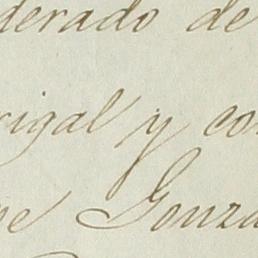 derado de
rigal y con
ne Gonza